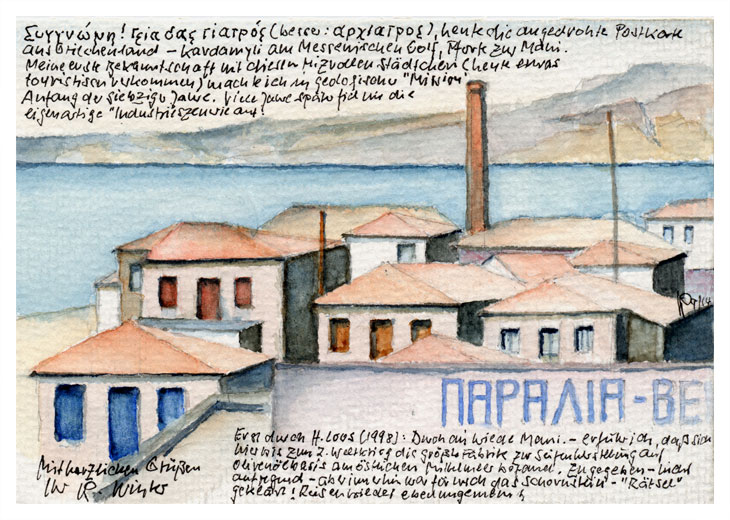 Συγγνώμη! Γεια σας γιατρός (besser: αρχιατρος), heute die angedrohte Postkarte
aus Griechenland – Kardamyli am Messenischen Golf, Pforte zur Mani.
Meine erste Bekanntschaft mit diesem reizvollen Städtchen (heute etwas
touristisch verkommen) machte ich in geologischer "Mission"
Anfang der siebziger Jahre. Viele Jahre später fiel mir die
eigenartige "Industrieszenerie" auf!
ΠΑΡΑΛΙΑ-ΒΕ
Erst durch H. Loos (1998): Durch die Mani. – erfuhr ich, daß sich
hier bis zum 2. Weltkrieg die größte Fabrik zur Seifenherstellung auf
Olivenölbasis am östlichen Mittelmeer befand. Zugegeben – nicht
aufregend – aber immerhin war für mich das Schornstein-"Rätsel"
geklärt! Reisen bildet eben ungemein!
Mit herzlichen Grüßen
Ihr R. Winter